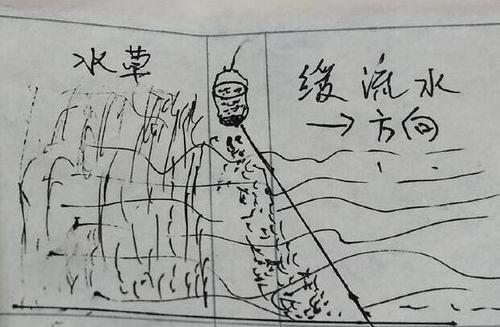 水草
缓流水
→方向